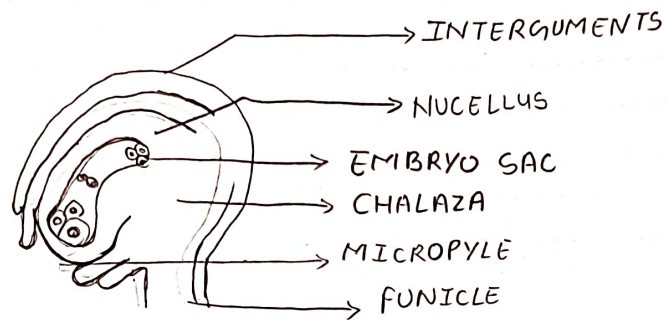 INTERGUMENTS
NUCELLUS
EMBRYO SAC
CHALAZA
MICROPYLE
FUNICLE